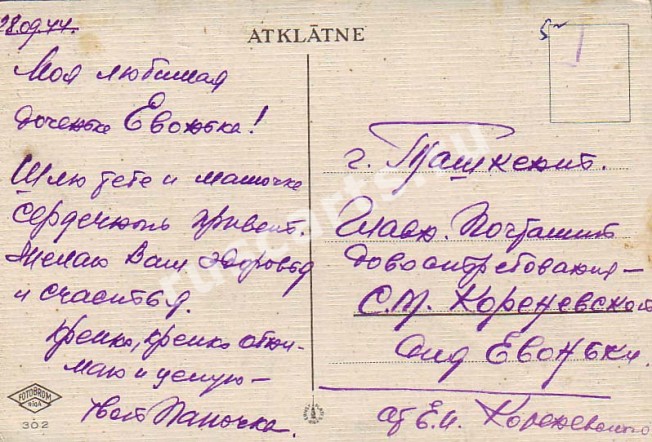 28.09.44.
ATKLĀTNE
Моя любимая
доченька Евонька!
Шлю тебе и мамочке
сердечный привет.
Желаю Вам здоровья
и счастья.
Крепко, крепко обни-
маю и целую —
твой Папочка.
FOTOBROM
RIGA
302
г. Ташкент.
Главн. Почтамт
довостребования —
Кореневской
Евоньки
от Е.И. Кореневского
ruscarts.ru